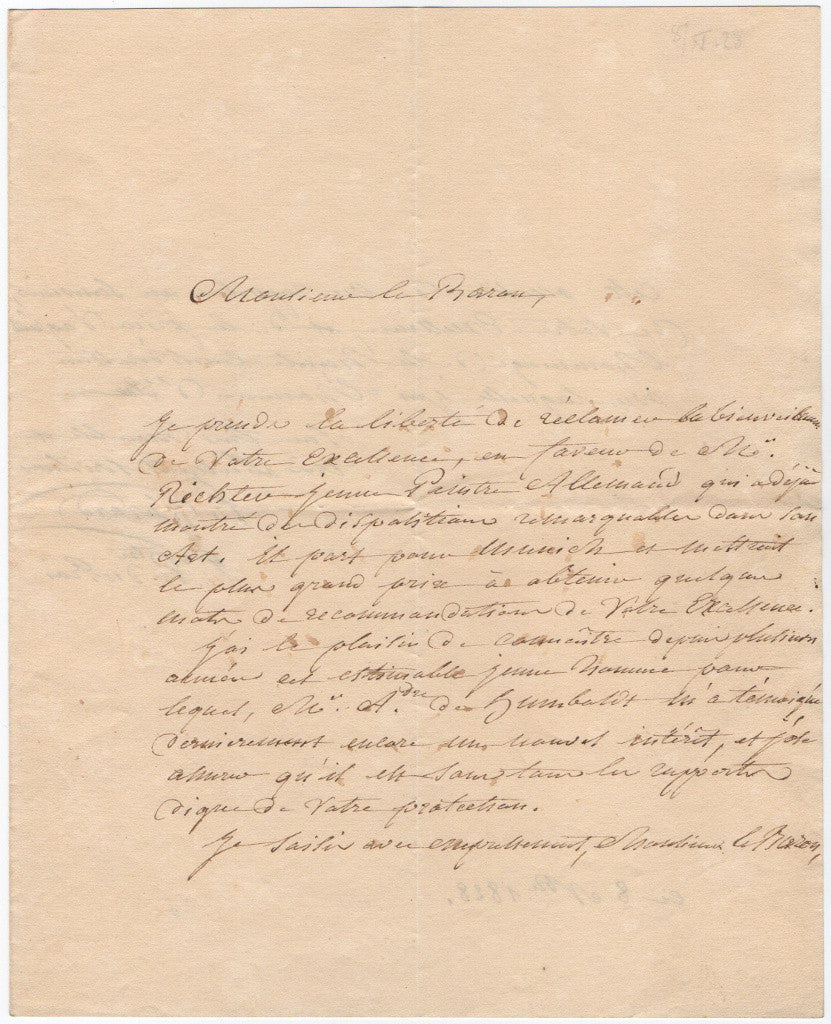 Monsieur le Baron,
Je prends la liberté de réclamer la bienveillance
de Votre Excellence, en faveur de Mr.
Richter jeune Peintre Allemand qui a déjà
montré des dispositions remarquables dans son
Art. Il part pour Munich et mettrait
le plus grand prix à obtenir quelques
mots de recommandations de Votre Excellence.
J'ai le plaisir de connaître depuis plusieurs
années cet estimable jeune homme pour
lequel, Mr. Adre de Humboldt m'a témoigné
dernierement encore un nouvel intérêt, et j'ose
assurer qu'il est sous tous les rapports
digne de Votre protection.
Je saisis avec empressement, Monsieur le Baron,